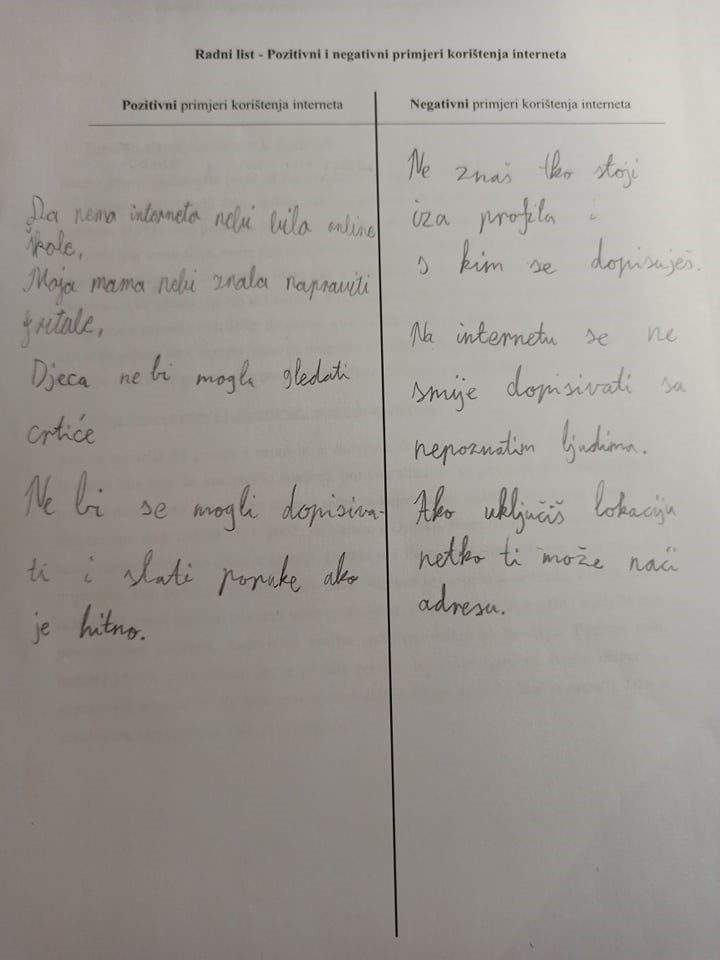 Radni list - Pozitivni i negativni primjeri korištenja interneta
Pozitivni primjeri korištenja interneta
Da nema interneta nebi bila online
škole,
Moja mama nebi znala napraviti
fritale,
Djeca ne bi mogla gledati
crtiće
Ne bi se mogli dopisiva-
ti i slati poruke ako
je hitno.
Negativni primjeri korištenja interneta
Ne znaš tko stoji
iza profila i
s kim se dopisuješ.
Na internetu se ne
smije dopisivati sa
nepoznatim ljudima.
Ako uključiš lokaciju
netko ti može naći
adresu.